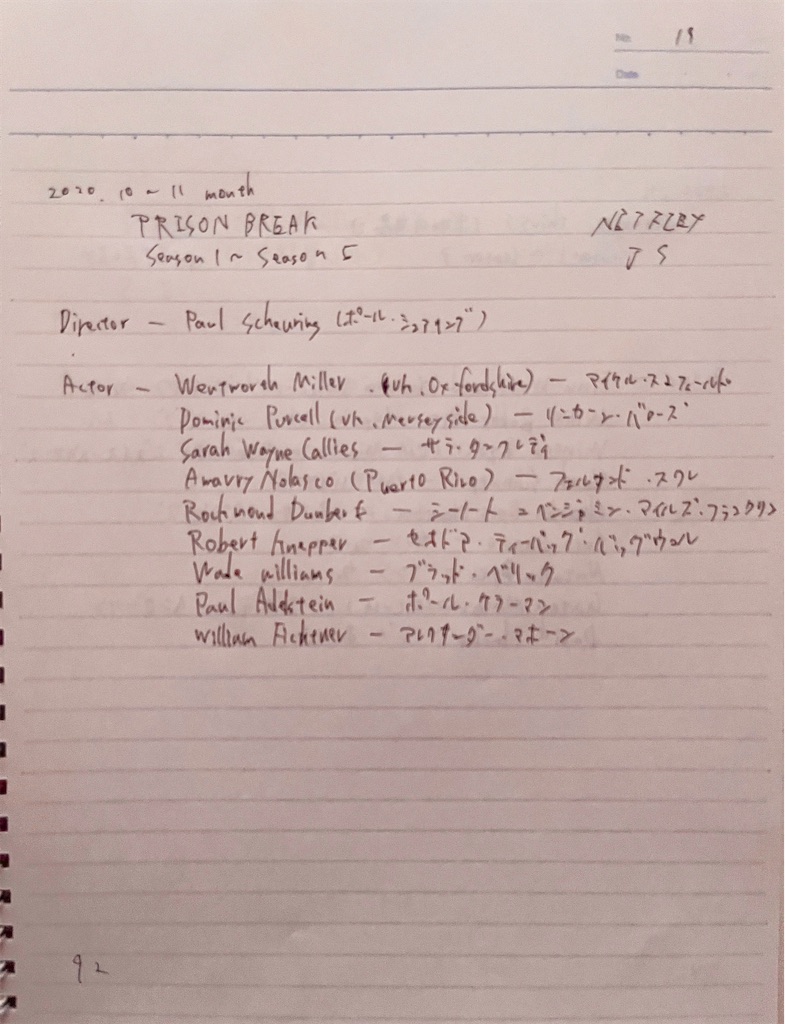 No. 19
Date
2020. 10 ~ 11 month
PRISON BREAK NETFLIX
Season 1 ~ Season 5 J S
Director — Paul Scheuring (ポール・シュアリング)
Actor — Wentworth Miller (uk. Oxfordshire) — マイケル・スコフィールド
Dominic Purcell (uk. Merseyside) — リンカーン・バローズ
Sarah Wayne Callies — サラ・タンクレディ
Amaury Nolasco (Puerto Rico) — フェルナンド・スクレ
Rockmond Dunbar — シーノート ベンジャミン・マイルズ・フランクリン
Robert Knepper — セオドア・ティーバッグ・バッグウェル
Wade williams — ブラッド・ベリック
Paul Adelstein — ポール・ケラーマン
William Fichtner — アレクサンダー・マホーン
92